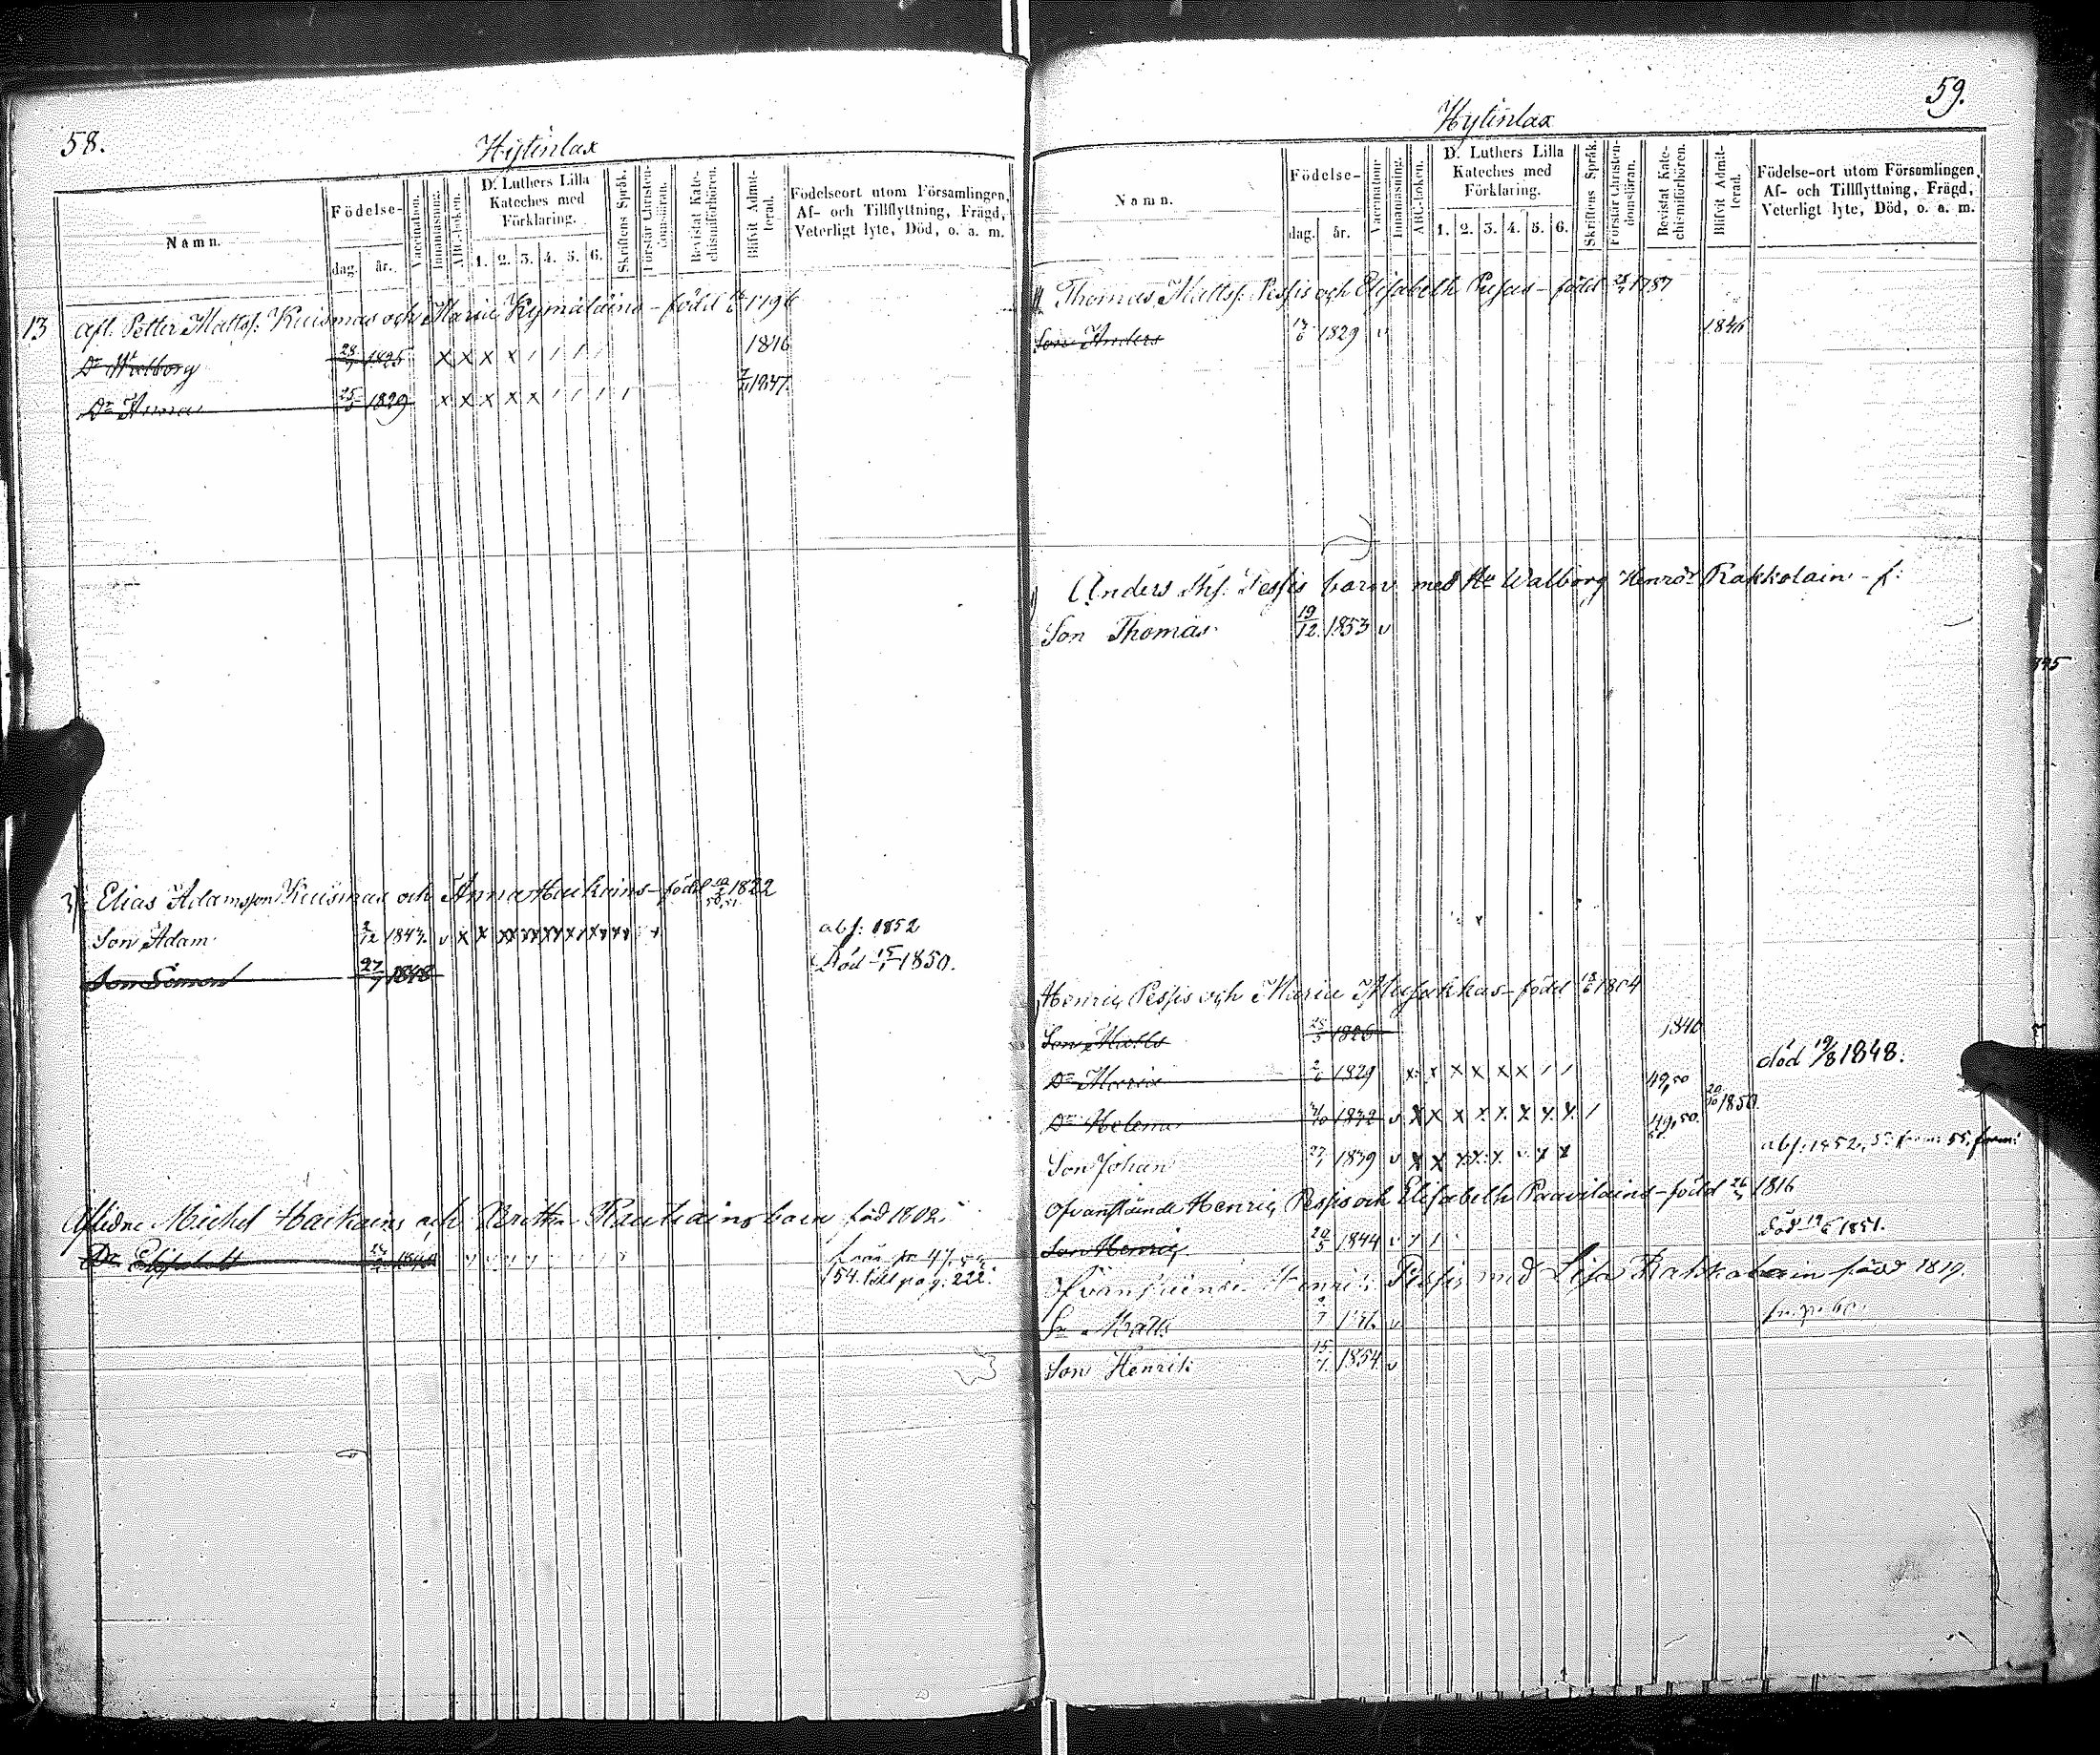 58.
Hytinlax
Namn.
Födelse-
dag.
år.
Vaccination.
Innanläsning.
ABC-boken.
D. Luthers Lilla
Kateches med
Förklaring.
1. 2. 3. 4. 5. 6.
Skriftens Språk.
Förstår Christen-
domsläran.
Bevistat Kate-
chismiförhören.
Blifvit Admit-
terad.
Födelseort utom Församlingen,
Af- och Tillflyttning, Frägd,
Veterligt lyte, Död, o. a. m.
13 afl. Petter Matts: Kuismas och Maria Kymäläins - född 1796
Dr Walborg 28/7 1825 x x x x / / / / 1846
Dr Anna 25/5 1829 x x x x x / / / / 1847
Elias Adamsson Kuismas och Anna Haikains - född 1822
Son Adam 2/12 1843 v x x xx xx xx x xx abs: 1852
Son Simon 27/7 1848 Död 15/1 1850.
Aflidne Michel Haikains och Britta Rautiains barn född 1802.
Dr Elisabeth från p. 47
54. till pag: 222.
59.
Hytinlax
Namn.
Födelse-
dag.
år.
Vaccination.
Innanläsning.
ABC-boken.
D. Luthers Lilla
Kateches med
Förklaring.
1. 2. 3. 4. 5. 6.
Skriftens Språk.
Förstår Christen-
domsläran.
Bevistat Kate-
chismiförhören.
Blifvit Admit-
terad.
Födelse-ort utom Församlingen,
Af- och Tillflyttning, Frägd,
Veterligt lyte, Död, o. a. m.
Thomas Mattss: Pessis och Elisabeth - född 1787
Son Anders 1829 v 1846
Anders Ths: Pessis barn med Hu Walborg Henrdr Rakkolain - f:
Son Thomas 19/12 1853 v
Henric Pessis och Maria - född 1804
Son Matts 25/5 1826 1846
Dr Maria 1829 x x x x x x / / 49,50 död 19/8 1848.
Dr Helena 1832 v x x x x x x x x / 49,50. 20/10 1850.
Son Johan 1839 v x x x x x v x x abs: 1852,
Ofvanstående Henric Pessis och Elisabeth Paavilains - född 1816
Son Henric 29/5 1844 v död 1851.
Ofvanstående Henric Pessis med Lisa Rakkolain född 1819.
Sn Matts v fr. p. 60.
Son Henrik 15/7 1854 v